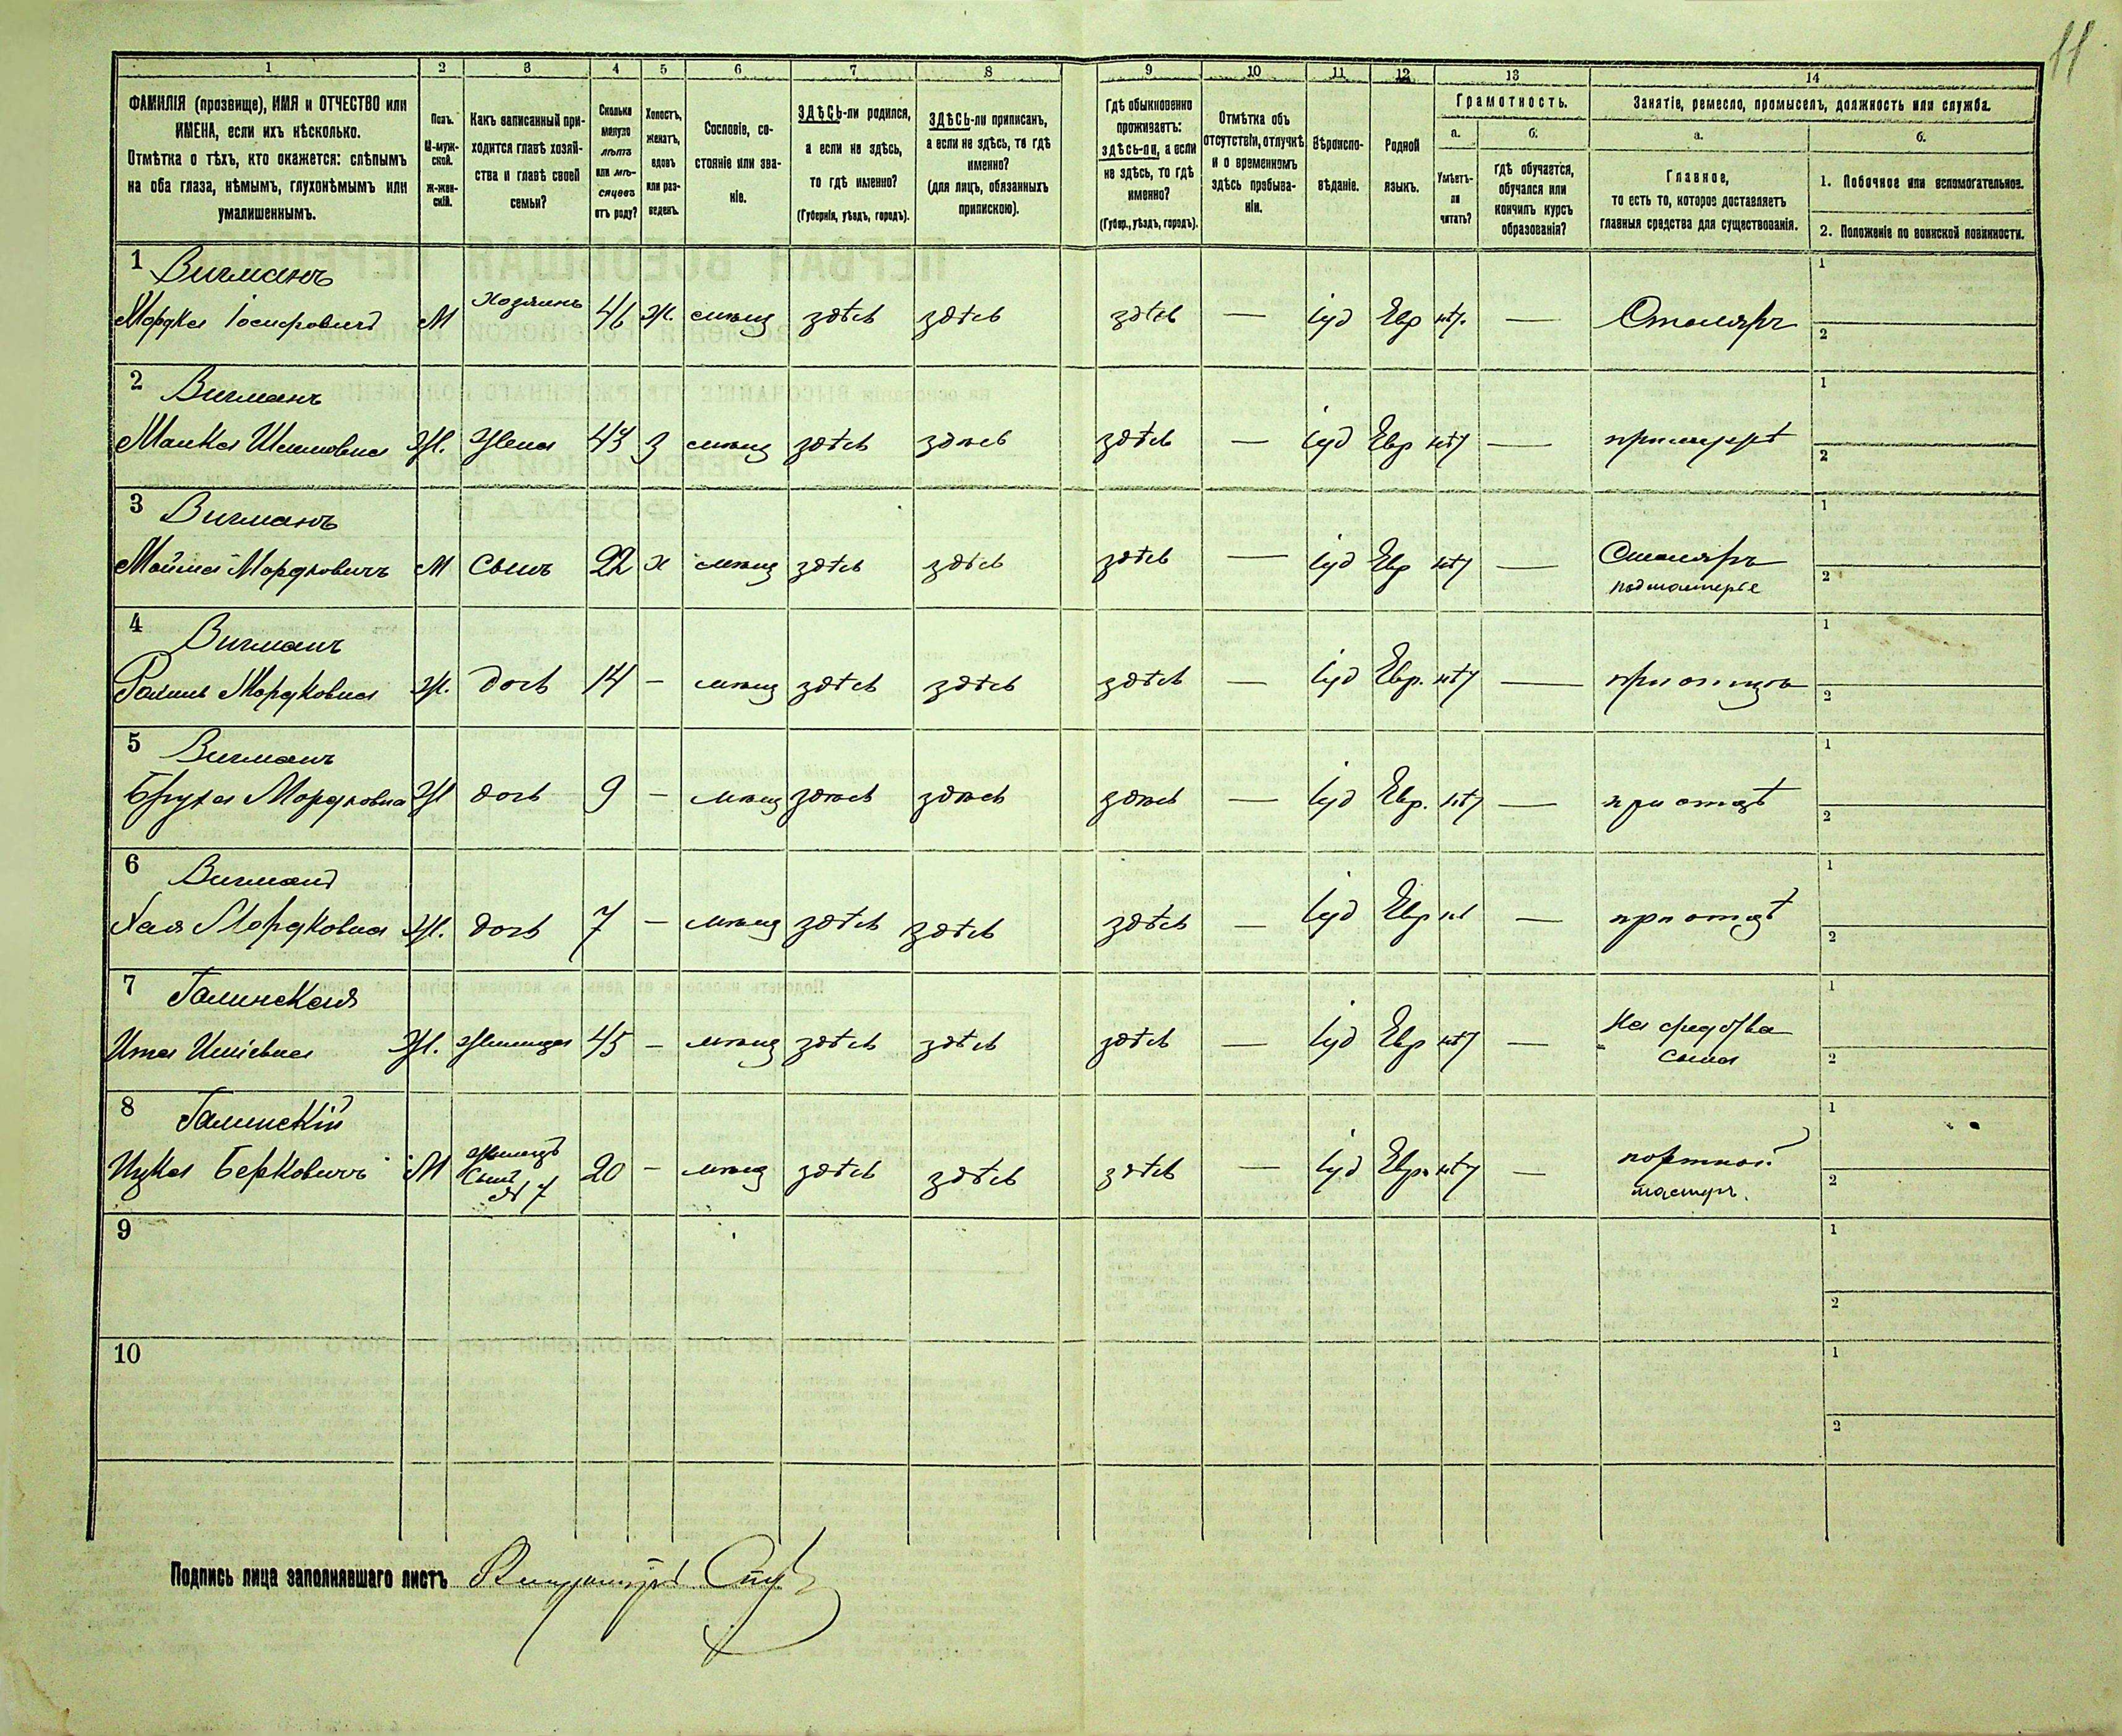 11
1 2 3 4 5 6 7 8 9 10 11 12 13 14
ФАМИЛІЯ (прозвище), ИМЯ и ОТЧЕСТВО или
ИМЕНА, если ихъ нѣсколько.
Отмѣтка о тѣхъ, кто окажется: слѣпымъ
на оба глаза, нѣмымъ, глухонѣмымъ или
умалишеннымъ.
Полъ.
М-муж-
ской.
Ж-жен-
скій.
Какъ записанный при-
ходится главѣ хозяй-
ства и главѣ своей
семьи?
Сколько
минуло
лѣтъ
или мѣ-
сяцевъ
отъ роду?
Холостъ,
женатъ,
вдовъ
или раз-
веденъ.
Сословіе, со-
стояніе или зва-
ніе.
ЗДѢСЬ-ли родился,
а если не здѣсь,
то гдѣ именно?
(Губернія, уѣздъ, городъ).
ЗДѢСЬ-ли приписанъ,
а если не здѣсь, то гдѣ
именно?
(для лицъ, обязанныхъ
припискою).
Гдѣ обыкновенно
проживаетъ:
здѣсь-ли, а если
не здѣсь, то гдѣ
именно?
(Губер., уѣздъ, городъ).
Отмѣтка объ
отсутствіи, отлучкѣ
и о временномъ
здѣсь пребыва-
ніи.
Вѣроиспо-
вѣданіе.
Родной
языкъ.
Грамотность.
а. б.
Умѣетъ-
ли
читать?
гдѣ обучается,
обучался или
кончилъ курсъ
образованія?
Занятіе, ремесло, промыселъ, должность или служба.
а. б.
Главное,
то есть то, которое доставляетъ
главныя средства для существованія.
1. Побочное или вспомогательное.
2. Положеніе по воинской повинности.
1 Вигманъ
Мордка Іосифовичъ М Хозяинъ 46 ж. мѣщ здѣсь здѣсь здѣсь — іуд Евр нѣт. — Столяръ
1
2
2 Вигманъ
Ж. Жена 43 з мѣщ здѣсь здѣсь здѣсь — іуд Евр нѣт — при мужѣ
1
2
3 Вигманъ
Мордковичъ М Сынъ 22 х мѣщ здѣсь здѣсь здѣсь — іуд Евр нѣт — Столяръ
подмастерье
1
2
4 Вигманъ
Мордковна Ж. дочь 14 — мѣщ здѣсь здѣсь здѣсь — іуд Евр. нѣт — при отцѣ
1
2
5 Вигманъ
Мордковна Ж дочь 9 — мѣщ здѣсь здѣсь здѣсь — іуд Евр. нѣт — при отцѣ
1
2
6 Вигманъ
Хая Мордковна Ж. дочь 7 — мѣщ здѣсь здѣсь здѣсь — іуд Евр — при отцѣ
1
2
7 Галинская
Ита Ж. жилица 45 — мѣщ здѣсь здѣсь здѣсь — іуд Евр нѣт — На средства
сына
1
2
8 Галинскій
Ицка Берковичъ М жилецъ
Сынъ
№ 7 20 — мѣщ здѣсь здѣсь здѣсь — іуд Евр. нѣт — портной
мастеръ.
1
2
9
1
2
10
1
2
Подпись лица заполнявшаго листъ